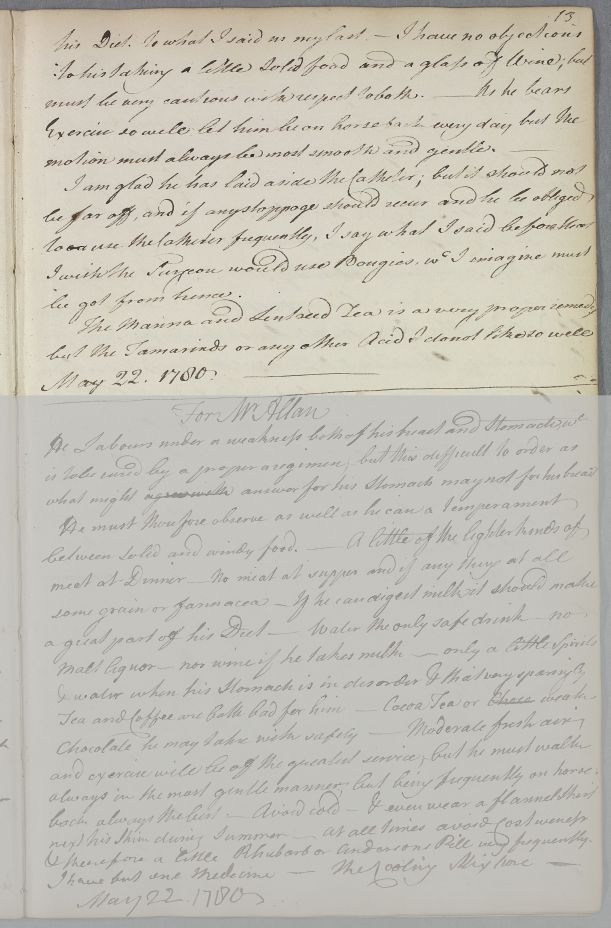 13
his Diet. to what I said in my last. — I have no objections
to his taking a little solid food and a glass of Wine; but
must be very cautious with respect to both. — As he bears
Exercise so well let him be on horse back every day but the
motion must always be most smooth and gentle. —
I am glad he has laid aside the Catheter; but it should not
be far off, and if any stoppage should recur and he be obliged
to use the Catheter frequently, I say what I said before that
I wish the Surgeon would use Bougies, wc I imagine must
be got from hence.
The Manna and Lintseed Tea is a very proper remedy
but the Tamarinds or any other Acid I do not like so well
May 22. 1780.
For Mr Allan
He Labours under a weakness both of his breast and Stomach wc
is to be cured by a proper regimen, but this difficult to order as
what might agree with answer for his Stomach may not for his breast
He must therefore observe as well as he can a temperament
between solid and windy food. — A little of the lighter kinds of
meat at Dinner — No meat at supper and if any thing at all
some grain or farinacea — If he can digest milk it should make
a great part of his Diet — Water the only safe drink — no
Malt liquor — nor wine if he takes milk — only a little Spirits
& water when his Stomach is in disorder & that very sparingly
Tea and Coffee are both bad for him — Cocoa Tea or weak
Chocolate he may take with safety — Moderate fresh air
and exercise will be of the greatest service, but he must walk
always in the most gentle manner, but being frequently on horse-
back always the best — Avoid cold — & even wear a flannel Shirt
next his Skin during Summer — at all times avoid Costiveness
& therefore a little Rhubarb or Andersons Pill very frequently.
I have but one Medicine — The Cooling Mixture —
May 22. 1780